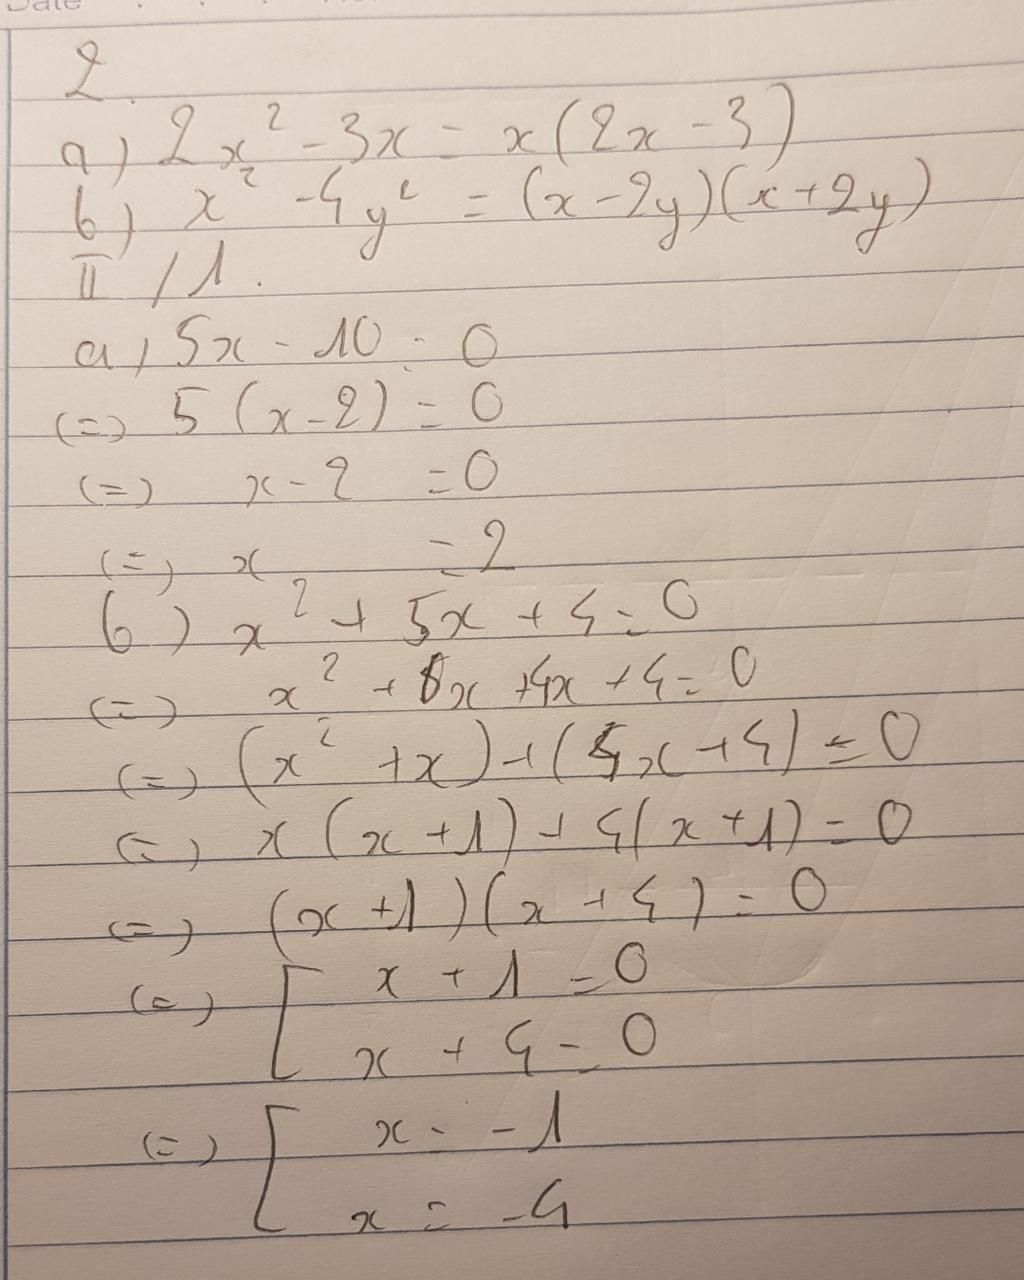 Date
2.
a) 2x² - 3x = x(2x - 3)
b) x² - 4y² = (x - 2y)(x + 2y)
II / 1.
a, 5x - 10 = 0
(=) 5 (x - 2) = 0
(=) x - 2 = 0
(=) x = 2
b) x² + 5x + 4 = 0
(=) x² + x + 4x + 4 = 0
(=) (x² + x) + (4x + 4) = 0
(=) x (x + 1) + 4(x + 1) = 0
(=) (x + 1)(x + 4) = 0
(=) [ x + 1 = 0
x + 4 = 0
(=) [ x = -1
x = -4